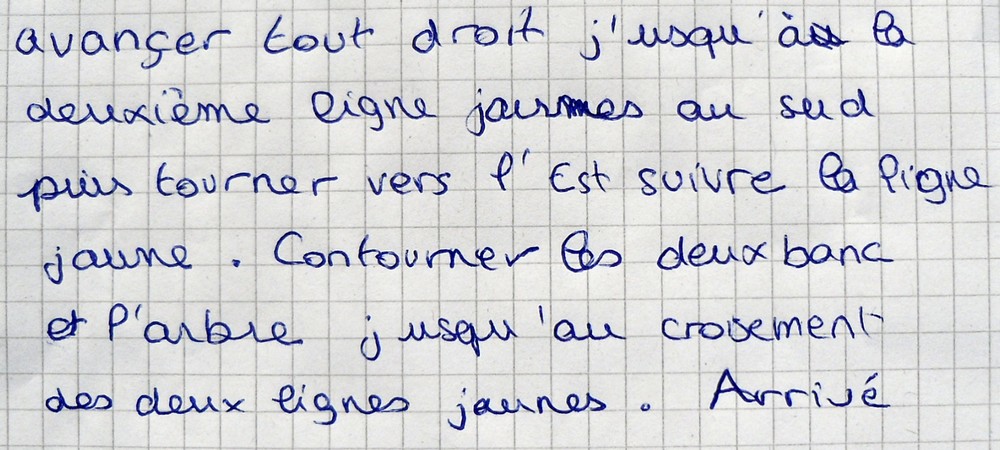 avançer tout droit j'usqu'à la
deuxième ligne jaunes au sud
puis tourner vers l'Est suivre la ligne
jaune. Contourner les deux banc
et l'arbre jusqu'au croisement
des deux lignes jaunes. Arrivé